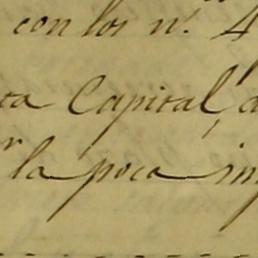 con los n.º 4
ta Capital, a
la poca im